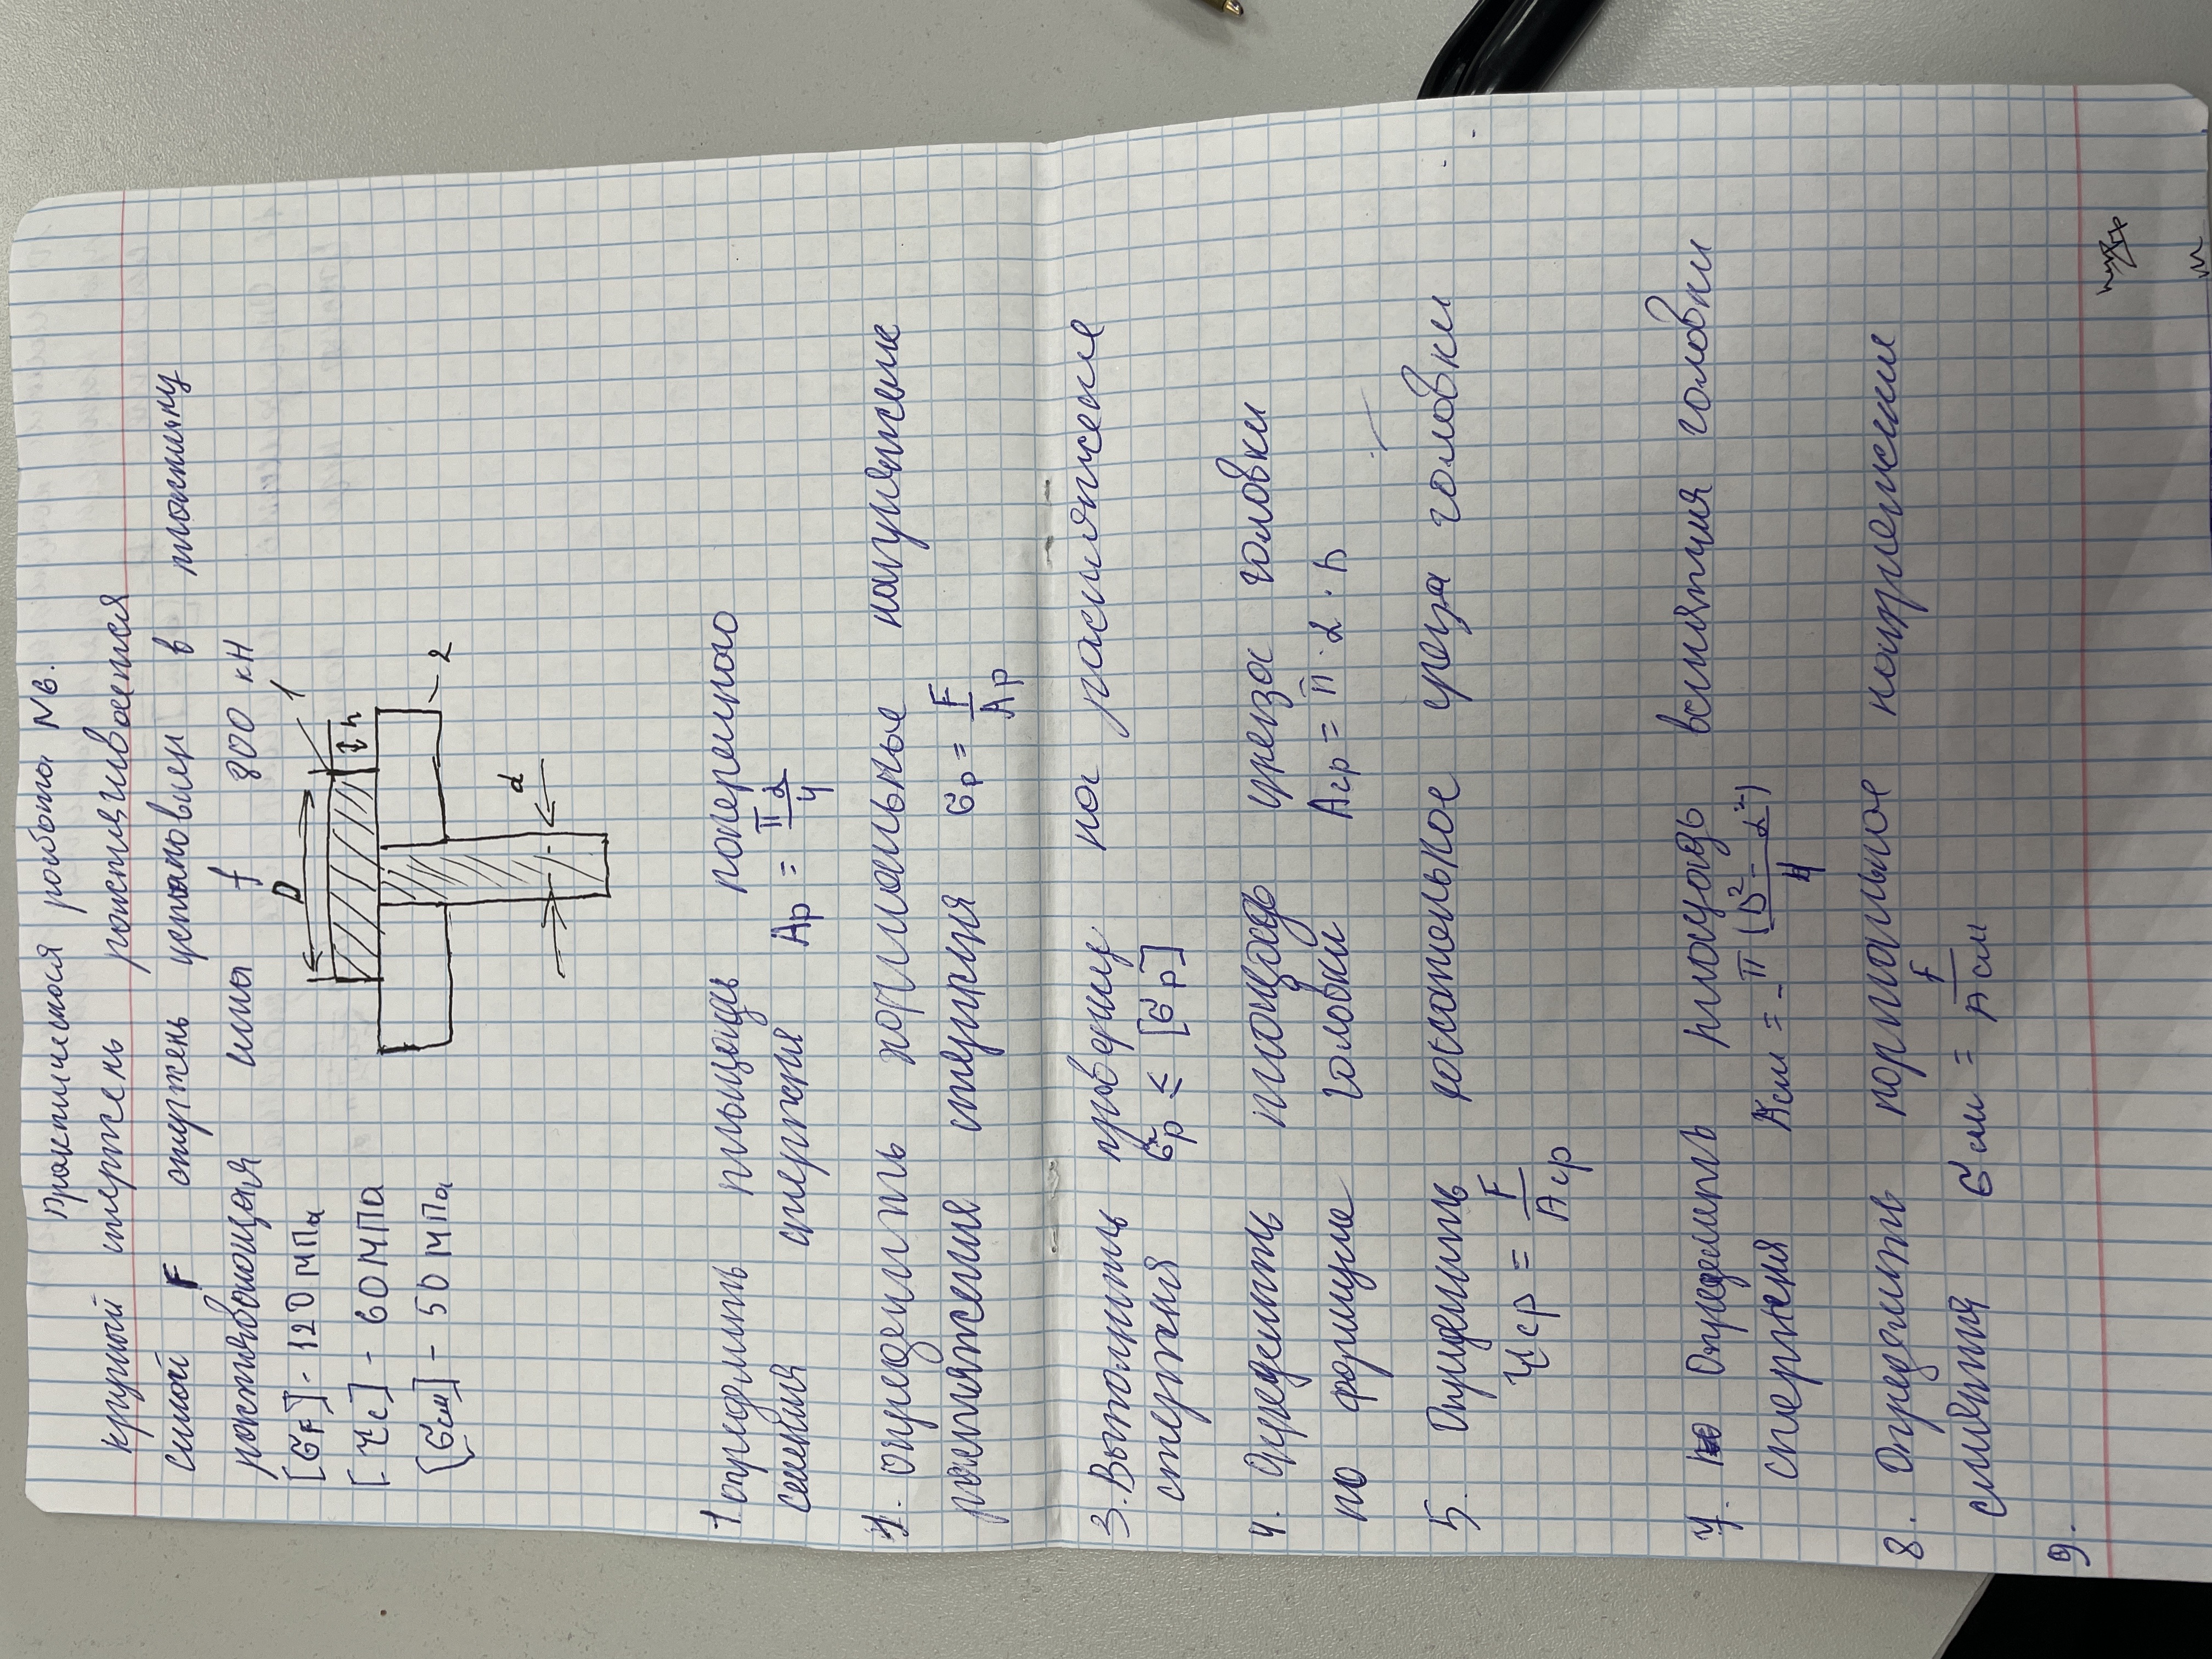 Практическая работа №6.
круглый стержень растягивается
силой F стержень установлен в пластину
растягивающая сила f 800 кН
[σF] - 120 МПа
[τc] - 60 МПа
[σсм] - 50 МПа
D
1
h
2
d
1 определить площадь поперечного
сечения стержня Aр = πd/4
2. определить нормальное напряжение
растяжения стержня σр = F/Aр
3. Выполнить проверку на растяжение
стержня σр ≤ [σр]
4. Определить площадь среза головки
по формуле головки Aср = π · d · D
5. Определить касательное среза головки
τср = F/Aср
7. Определить площадь смятия головки
стержня Aсм = π (D² - d²)/4
8. Определить нормальное напряжение
смятия σсм = F/Aсм
9.